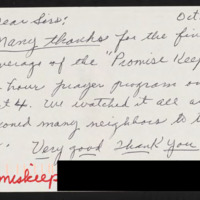 Dear Sirs: Oct
Many thanks for the fine
coverage of the "Promise Keep
hour prayer program on
at 4. We watched it all and
phoned many neighbors to
Very good Thank You
miskeep